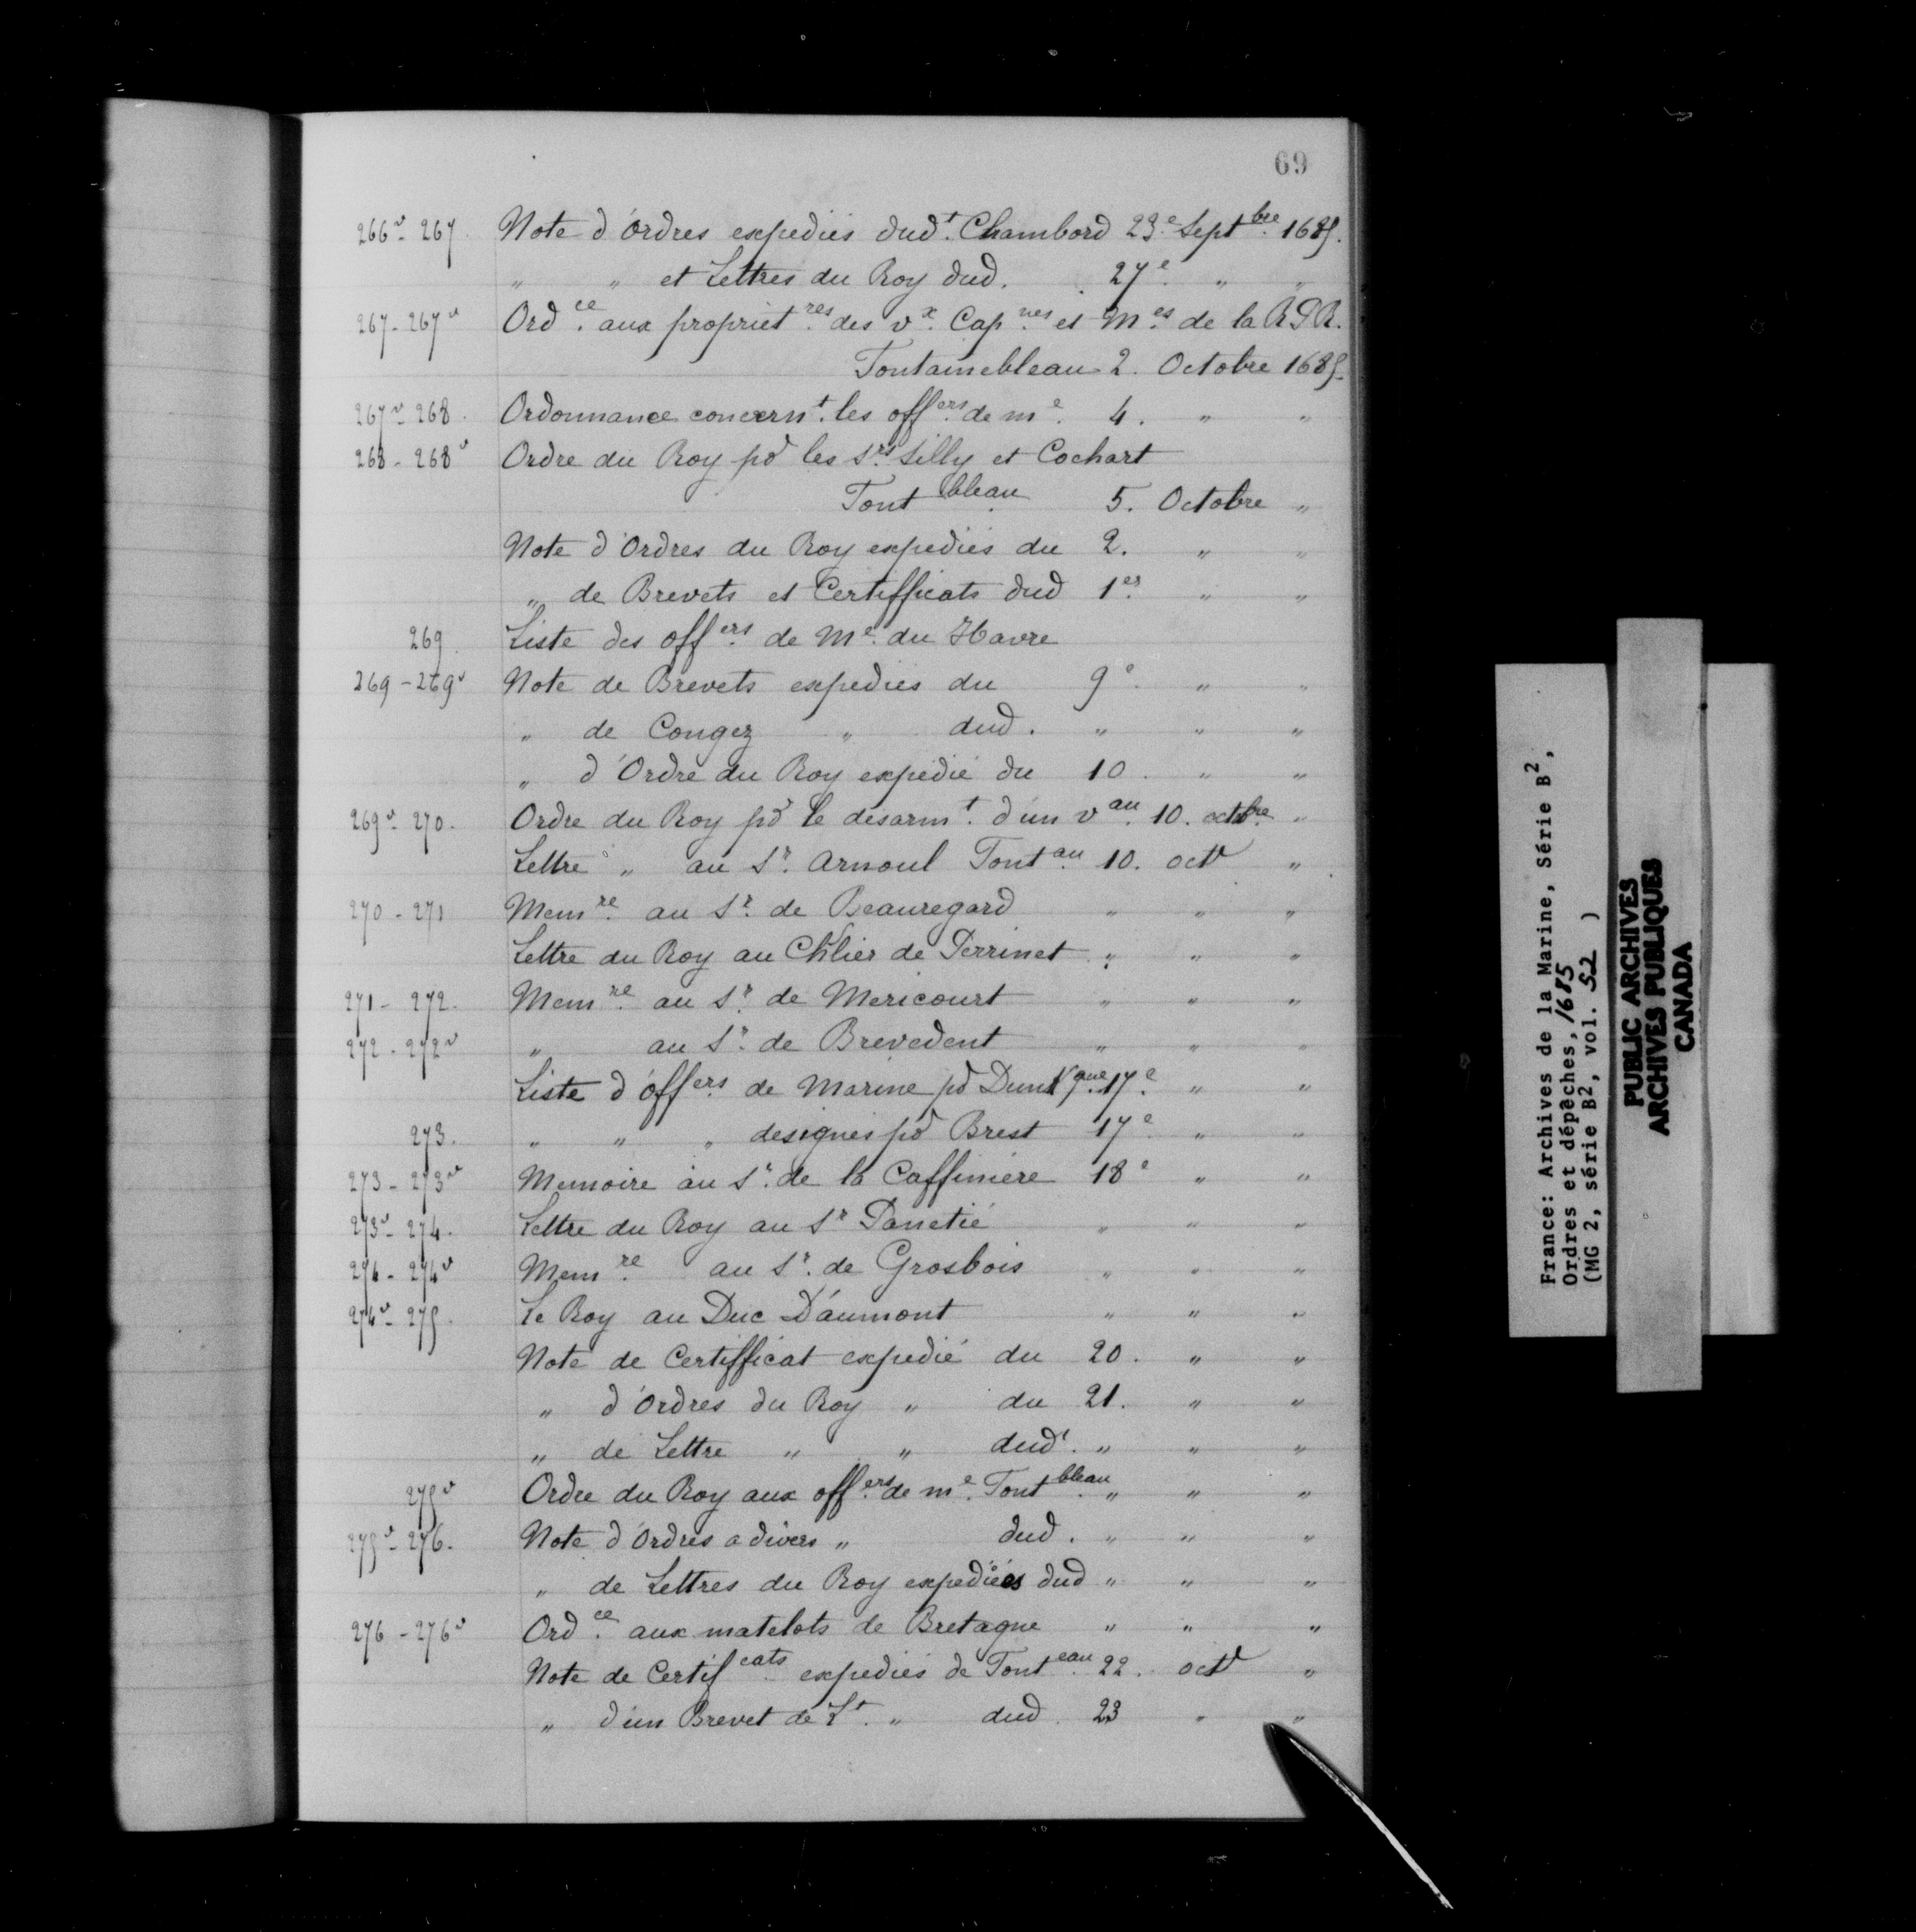 69
266v - 267. Note d'Ordres expediés dudt. Chambord 23e. Septbre. 1685.
" " et Lettres du Roy dud. 27e. " "
267 - 267v Ordce. aux proprietres des vx. Capnes et Mes. de la R.P.R.
Fontainebleau 2. Octobre 1685.
267v - 268. Ordonnance concernt. les offers. de me. 4. " "
268 - 268v Ordre du Roy pr les Srs. Silly et Cochart
Fontbleau. 5. Octobre "
Note d'Ordres du Roy expediés du 2. " "
" de Brevets et Certifficats dud 1er. " "
269. Liste des offers. de Me. du Havre
269 - 269v Note de Brevets expediés du 9e. " "
" de Congez " dud. " " "
" d'Ordre du Roy expedié du 10. " "
269v - 270. Ordre du Roy pr le desarmt. d'un vau. 10. octbre. "
Lettre " au Sr. Arnoul Fontau. 10. octr "
270 - 271 Memre. au Sr. de Beauregard " " "
Lettre du Roy au Chlier de Perrinet " " "
271 - 272. Memre. au Sr. de Mericourt " " "
272 - 272v " au Sr. de Brevedent " " "
Liste d'offers. de Marine pr Dunkque. 17e. " "
273. " " " designés pr Brest 17e. " "
273 - 273v Memoire au Sr. de la Caffiniere 18e " "
273v - 274. Lettre du Roy au Sr Panetié " " "
274 - 274v Memre. au Sr. de Grosbois " " "
274v - 275. Le Roy au Duc D'aumont " " "
Note de Certifficat expedié du 20. " "
" d'Ordres du Roy " du 21. " "
" de Lettre " " dudt. " " "
275v Ordre du Roy aux offers. de me. Fontbleau. " " "
275v - 276. Note d'Ordres a divers " dud. " " "
" de Lettres du Roy expediées dud " " "
276 - 276v Ordce. aux matelots de Bretagne " " "
Note de Certifcats. expediés de Fonteau. 22. octr "
" d'un Brevet de Lt. " dud. 23 " "
France: Archives de la Marine, Série B2,
Ordres et dépêches, 1685
(MG 2, série B2, vol. 52 )
PUBLIC ARCHIVES
ARCHIVES PUBLIQUES
CANADA